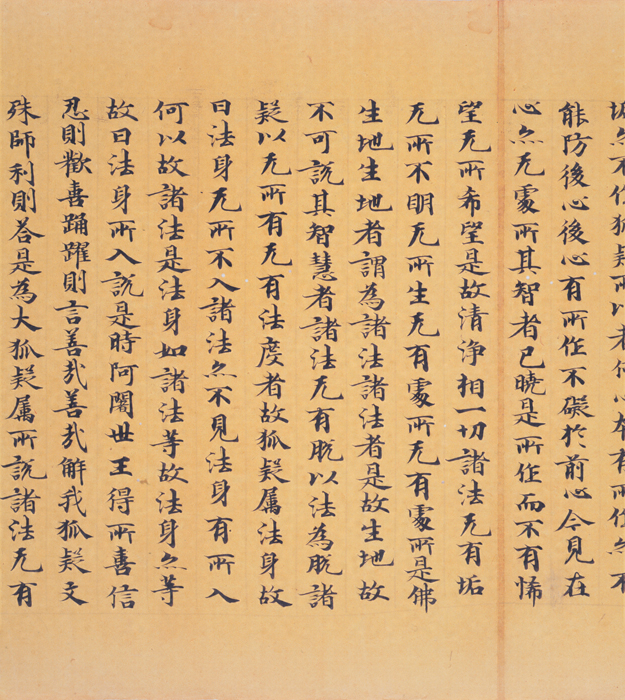 不作狐疑所以者何心本有所作亦不
能防後心後心有所作不礙於前心今見在
心亦无處所其智者已曉是所作而不有悕
望无所希望是故清淨相一切諸法无有垢
无所不明无所生无有處所无有處所是佛
生地生地者謂為諸法諸法者是故生地故
不可說其智慧者諸法无有脫以法為脫諸
疑以无所有无有法度者故狐疑属法身故
曰法身无所不入諸法亦不見法身有所入
何以故諸法是法身如諸法等故法身亦等
故曰法身所入說是時阿闍世王得所喜信
忍則歡喜踊躍則言善哉善哉解我狐疑文
殊師利則答是為大狐疑属所說諸法无有